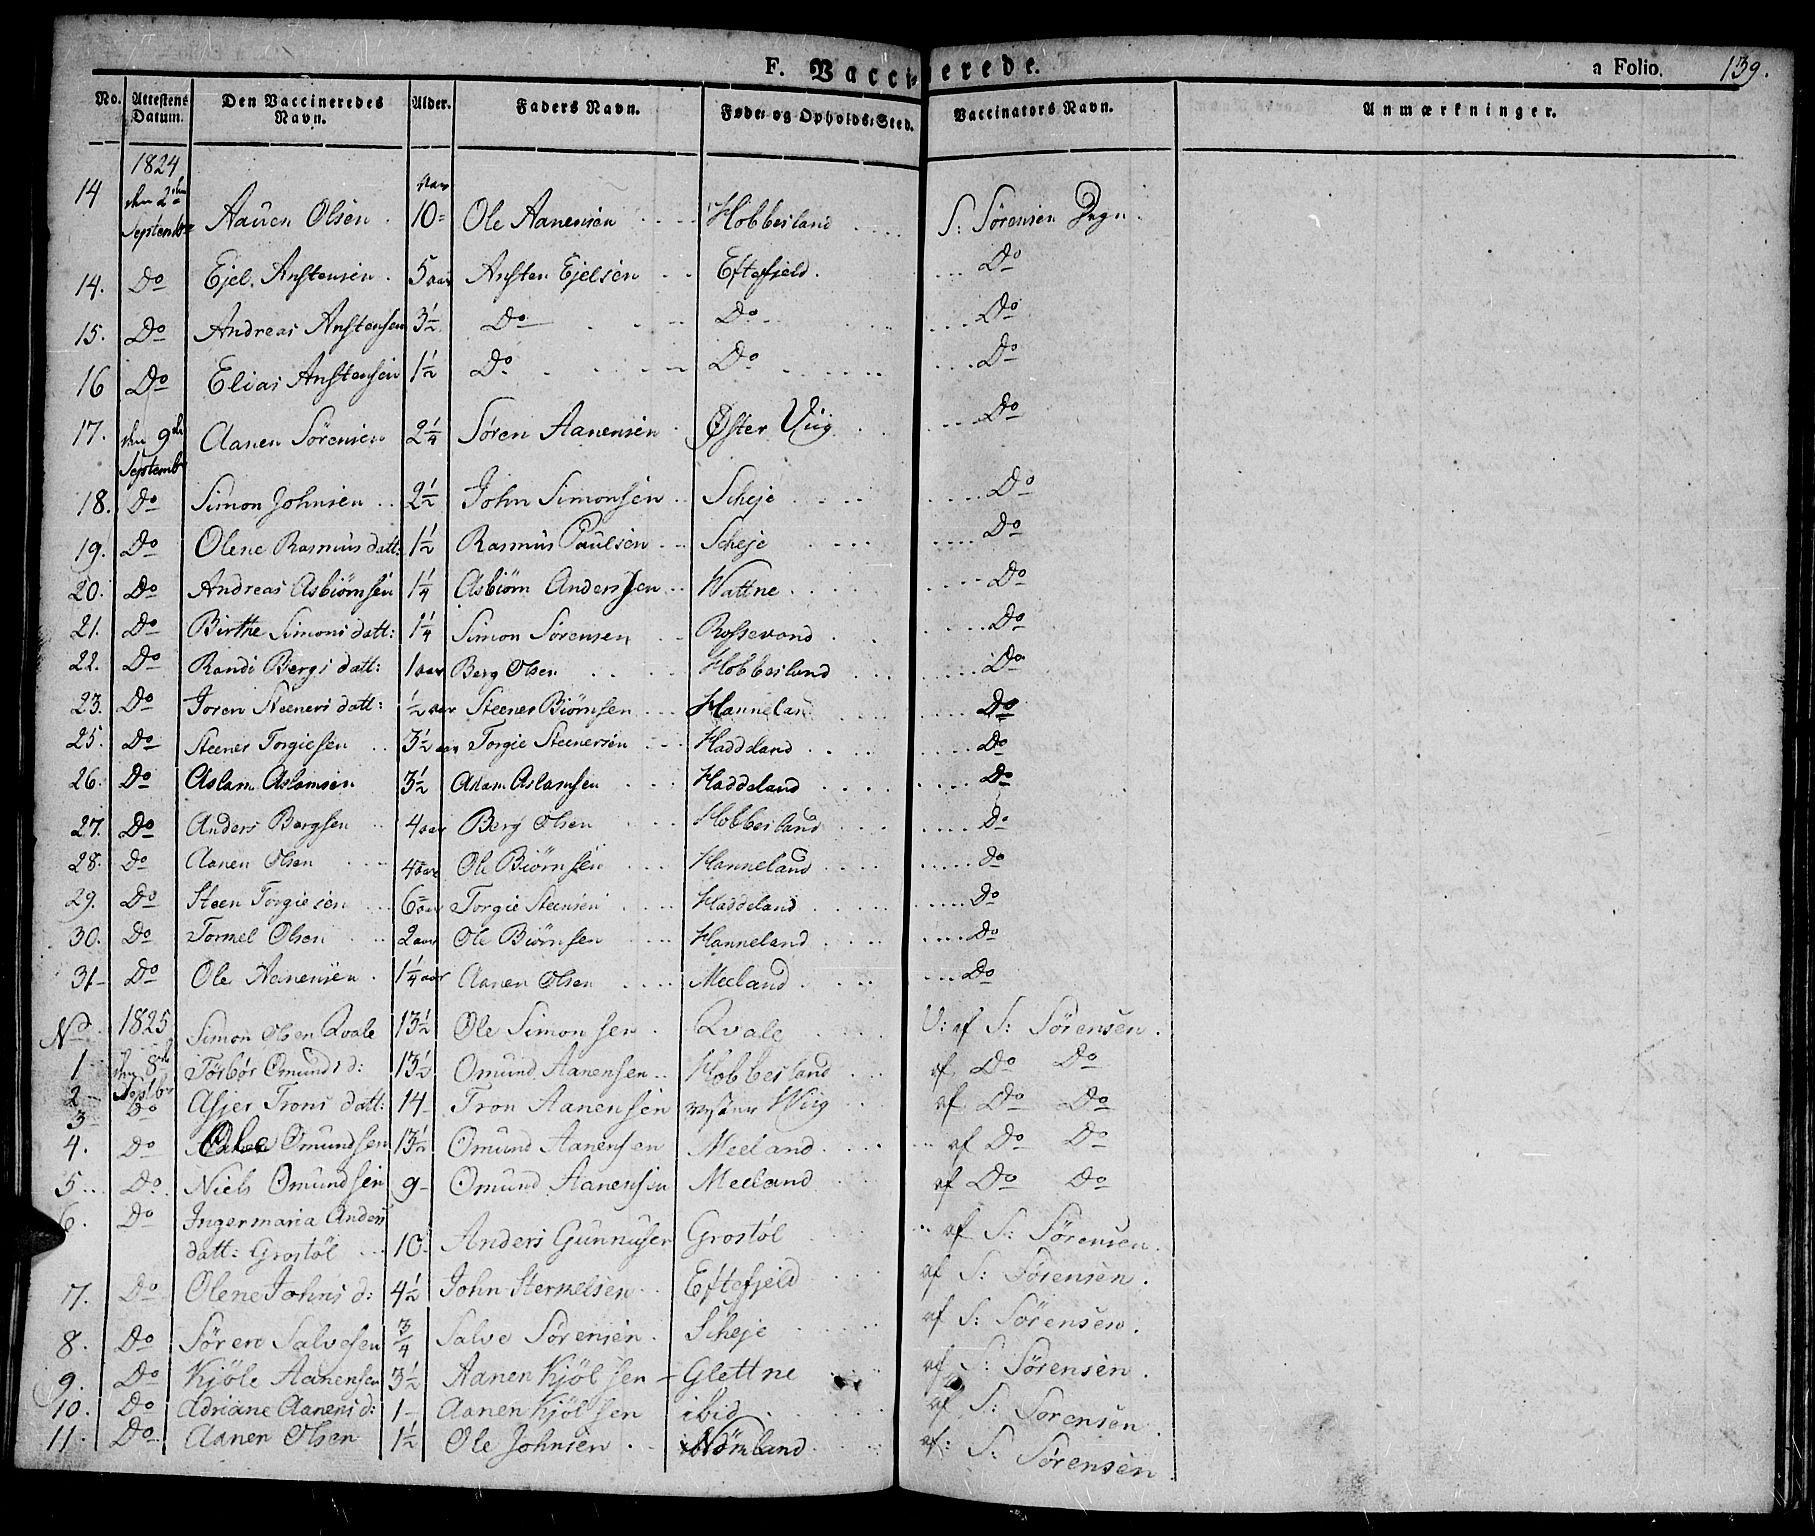 F. Vaccinerede. a Folio. 139.
No. Attestens Datum. Den Vaccineredes Navn. Alder. Faders Navn. Føde- og Opholds-Sted. Vaccinators Navn. Anmærkninger.
1824
14 den 2den September Aanen Olsen . 10 = Aar Ole Aanensen Hobbesland S: Sørensen Degn.
14. Do Ejel. Anstensen . 5 aar Ansten Ejelsen Eftefjeld. Do
15. Do Andreas Anstensen 3½ Do Do Do
16 Do Elias Anstensen 1½ Do Do Do
17. den 9de Septembr Aanen Sörensen 2¼ Søren Aanensen Øster Viig Do
18. Do Simon Johnsen 2½ John Simonsen Scheje Do
19. Do Olene Rasmus datt: 1½ Rasmus Paulsen Scheje Do
20. Do Andreas Asbiørnsen 1¼ Asbiørn Andersen Wattne Do
21. Do Birthe Simons datt: 1¼ Simon Sørensen Rossevand Do
22. Do Randi Bergs datt: 1 aar Berg Olsen Hobbesland Do
23. Do Joren Steeners datt: ½ aar Steener Biørnsen Hanneland Do
25. Do Steener Torgiesen 3½ aar Torgie Steenersen Haddeland Do
26. Do Aslam Aslamsen 3½ Aslam Aslamsen Haddeland Do
27. Do Anders Bergsen 4 aar Berg Olsen Hobbesland Do
28. Do Aanen Olsen 4 aar Ole Biørnsen Hanneland Do
29. Do Steen Torgiesen 6 aar Torgie Steensen Haddeland Do
30. Do Tormel Olsen 2 aar Ole Biørnsen Hanneland Do
31 Do Ole Aanensen 1¼ aar Aanen Olsen Meeland Do
No. 1825 Simon Olsen Qvale 13½ Ole Simonsen Qvale V: af S: Sørensen.
1 den 8de Septbr Torbör Omunds d: 13½ Omund Aanensen Hobbesland af Do Do
2 Asjer Trons datt: 14 Tron Aanensen vester Wiig af Do Do
3 Do
4. Do Ole Omundsen 13½ Omund Aanensen Meeland af Do Do
5 Do Niels Omundsen 9 Omund Aanensen Meeland af Do Do
6. Do Ingermaria Anders
datt: Grostøl 10 Anders Gunnusen Grostøl af S: Sørensen.
7. Do Olene Johns d: 4½ John Stermelsen Eftefjeld af S: Sørensen.
8. Do Sören Salvesen ¾ Salve Sørensen. Scheje af S: Sörensen.
9. Do Kjöle Aanensen 3½ Aanen Kjölsen Glettne af S: Sørensen.
10. Do Adriane Aanens d: 1 Aanen Kjölsen ibid af S: Sørensen.
11. Do Aanen Olsen 1½ Ole Johnsen. Nömland af: S: Sørensen